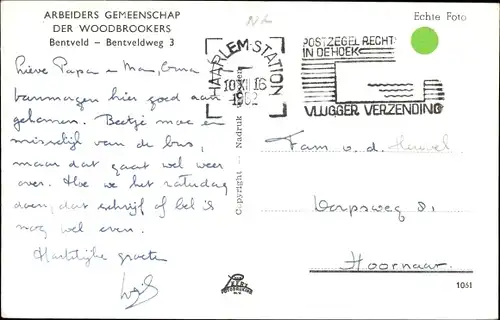 ARBEIDERS GEMEENSCHAP
DER WOODBROOKERS
Bentveld – Bentveldweg 3
Echte Foto
HAARLEM-STATION
10 XII 16
1962
POSTZEGEL RECHTS
IN DE HOEK
VLUGGER VERZENDING
Lieve Papa en Mam, Oma
vanmorgen hier goed aan
gekomen. Beetje moe en
misselijk van de bus,
maar dat gaat wel weer
over. Hoe we het zaterdag
doen, dat schrijf of bel ik
nog wel even.
Hartelijke groeten
Copyright - Nadruk
Fam v. d. Heuvel
Dorpsweg 81
Hoornaar.
1051